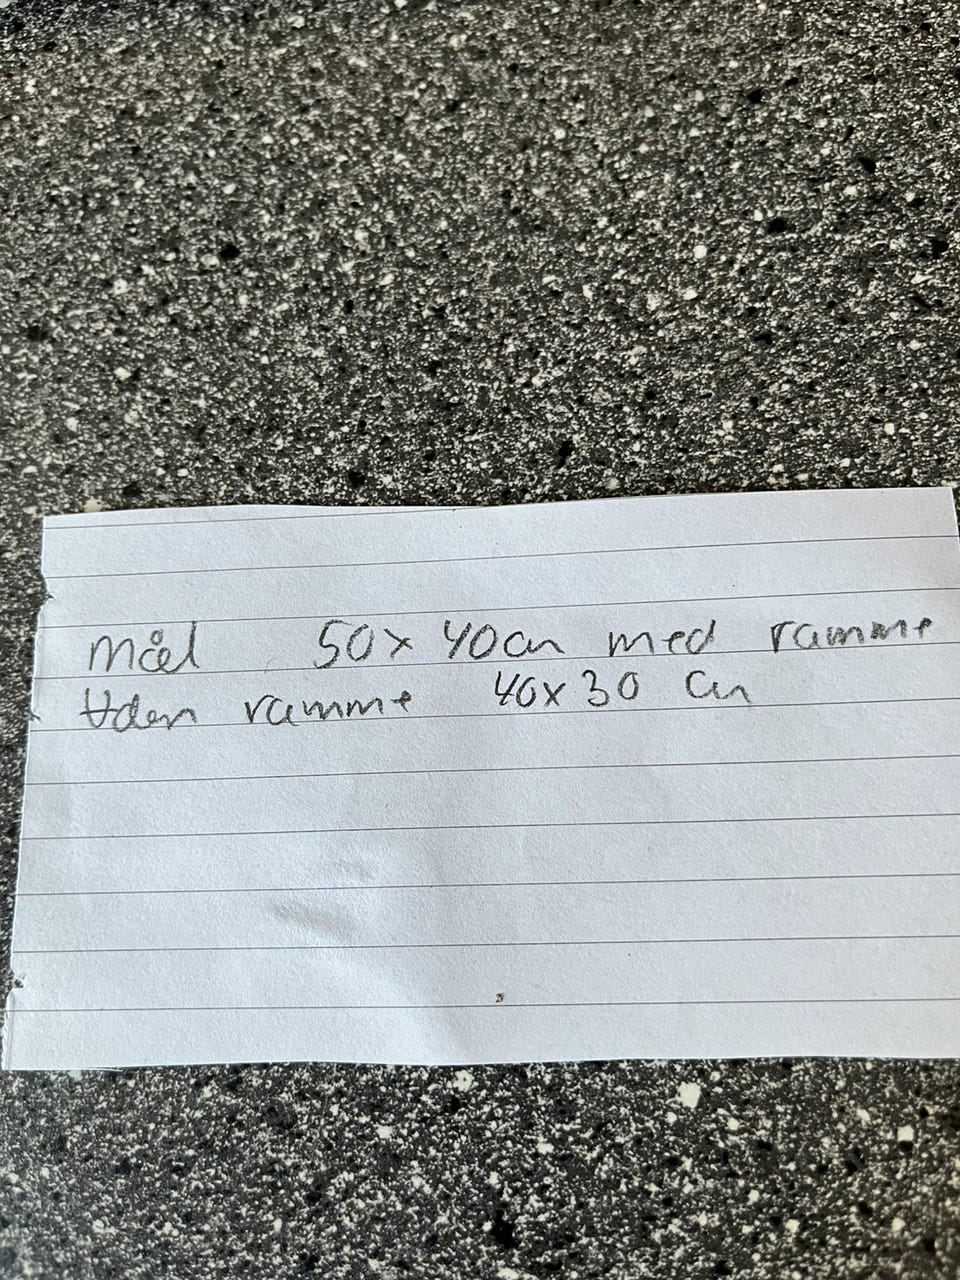 Mål 50x40cm med ramme
Uden ramme 40x30 cm